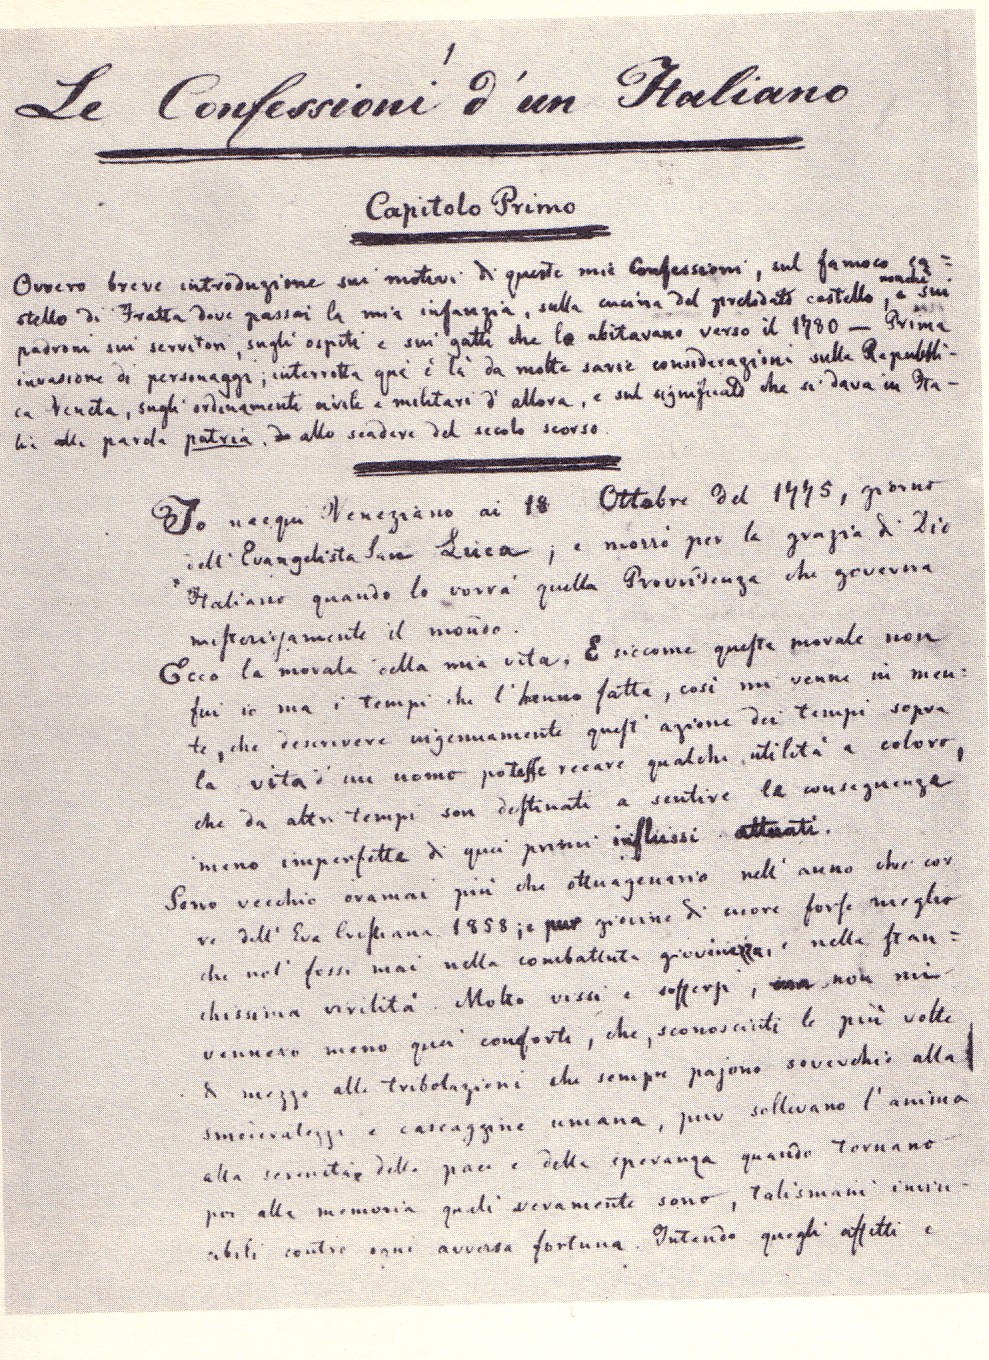 1
Le Confessioni d'un Italiano
Capitolo Primo
Ovvero breve introduzione sui motivi di queste mie Confessioni, sul famoso ca=
stello di Fratta dove passai la mia infanzia, sulla cucina del prelodato castello, nonchè sui
padroni sui servitori, sugli ospiti e sui gatti che lo abitavano verso il 1780 — Prima
invasione di personaggi; interrotta qua e là da molte savie considerazioni sulla Repubbli-
ca Veneta, sugli ordinamenti civili e militari d'allora, e sul significato che si dava in Ita-
lia alla parola patria, allo scadere del secolo scorso.
Io nacqui Veneziano ai 18 Ottobre del 1775, giorno
dell'Evangelista San Luca; e morrò per la grazia di Dio
Italiano quando lo vorrà quella Provvidenza che governa
misteriosamente il mondo.
Ecco la morale della mia vita. E siccome questa morale non
fui io ma i tempi che l'hanno fatta, così mi venne in men=
te, che descrivere ingenuamente quest'azione dei tempi sopra
la vita d'un uomo potesse recare qualche utilità a coloro,
che da altri tempi son destinati a sentire le conseguenze
meno imperfette di quei primi influssi attuati.
Sono vecchio oramai più che ottuagenario nell'anno che cor
re dell'Era Cristiana 1858; e pur giovine di cuore forse meglio
che nol fossi mai nella combattuta giovinezza, e nella stan=
chissima virilità. Molto vissi e soffersi; ma non mi
vennero meno quei conforti, che, sconosciuti le più volte
di mezzo alle tribolazioni che sempre pajono soverchie alla
smoderatezza e cascaggine umana, pur sollevano l'anima
alla serenità della pace e della speranza quando tornano
poi alla memoria quali veramente sono, talismani invin-
cibili contro ogni avversa fortuna. Intendo quegli affetti e